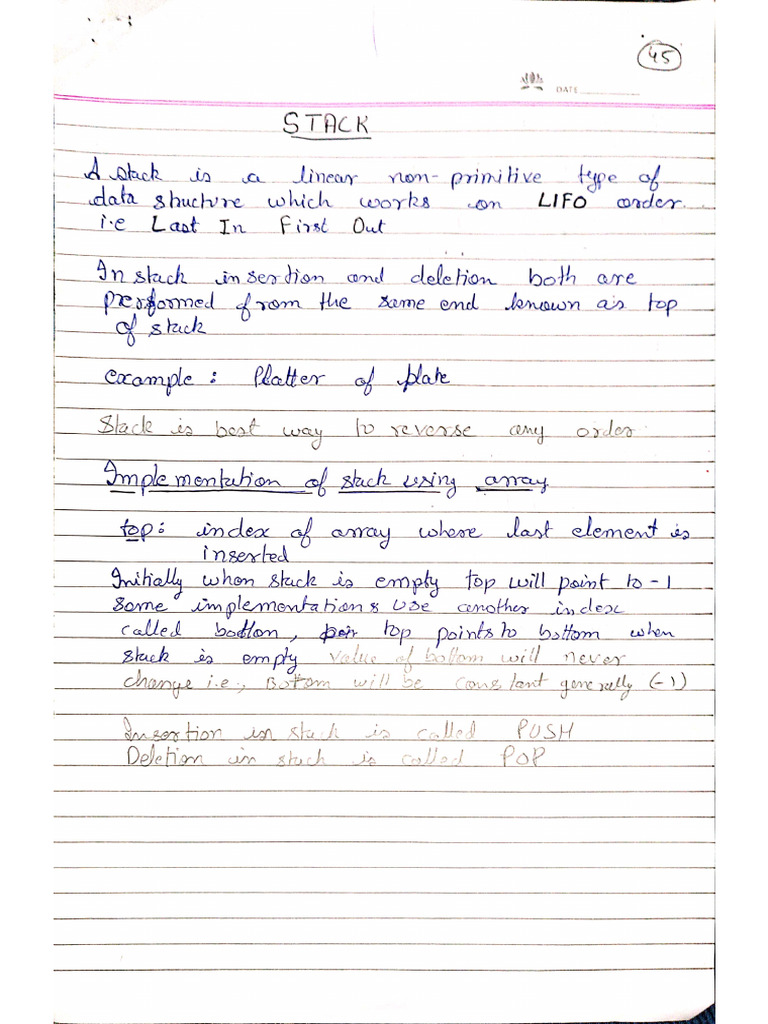 45
DATE
STACK
A stack is a linear non-primitive type of
data structure which works on LIFO order.
i.e Last In First Out
In stack insertion and deletion both are
performed from the same end known as top
of stack
example: Platter of plate
Stack is best way to reverse any order
Implementation of stack using array
top: index of array where last element is
inserted
Initially when stack is empty top will point to -1
some implementations use another index
called bottom, top points to bottom when
stack is empty value of bottom will never
change i.e., Bottom will be constant generally (-1)
Insertion in stack is called PUSH
Deletion in stack is called POP